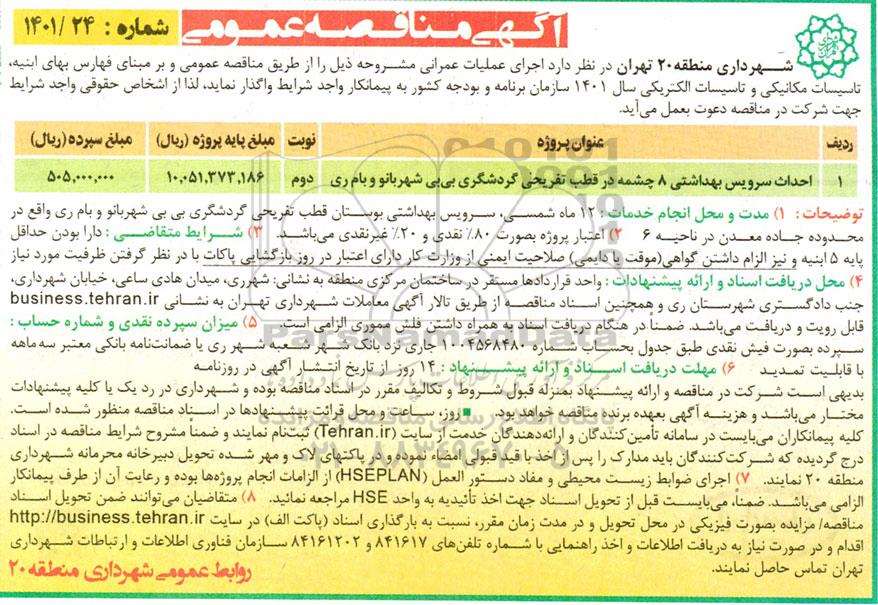 آگهی مناقصه عمومی
شماره : ۲۴ /۱۴۰۱
شهرداری منطقه۲۰ تهران در نظر دارد اجرای عملیات عمرانی مشروحه ذیل را از طریق مناقصه عمومی و بر مبنای فهارس بهای ابنیه،
تاسیسات مکانیکی و تاسیسات الکتریکی سال ۱۴۰۱ سازمان برنامه و بودجه کشور به پیمانکار واجد شرایط واگذار نماید، لذا از اشخاص حقوقی واجد شرایط
جهت شرکت در مناقصه دعوت بعمل می‌آید.
ردیف عنوان پروژه نوبت مبلغ پایه پروژه (ریال) مبلغ سپرده (ریال)
۱ احداث سرویس بهداشتی ۸ چشمه در قطب تفریحی گردشگری بی‌بی شهربانو و بام ری دوم ۱۰,۰۵۱,۳۷۳,۱۸۶ ۵۰۵,۰۰۰,۰۰۰
توضیحات : ۱) مدت و محل انجام خدمات : ۱۲ ماه شمسی، سرویس بهداشتی بوستان قطب تفریحی گردشگری بی بی شهربانو و بام ری واقع در
محدوده جاده معدن در ناحیه ۶ ۲) اعتبار پروژه بصورت ۸۰٪ نقدی و ۲۰٪ غیرنقدی می‌باشد. ۳) شرایط متقاضی : دارا بودن حداقل
پایه ۵ ابنیه و نیز الزام داشتن گواهی(موقت یا دایمی) صلاحیت ایمنی از وزارت کار دارای اعتبار در روز بازگشایی پاکات با در نظر گرفتن ظرفیت مورد نیاز
۴) محل دریافت اسناد و ارائه پیشنهادات : واحد قراردادها مستقر در ساختمان مرکزی منطقه به نشانی: شهرری، میدان هادی ساعی، خیابان شهرداری،
جنب دادگستری شهرستان ری و همچنین اسناد مناقصه از طریق تالار آگهی معاملات شهرداری تهران به نشانی business.tehran.ir
قابل رویت و دریافت می‌باشد. ضمناً در هنگام دریافت اسناد به همراه داشتن فلش مموری الزامی است. ۵) میزان سپرده نقدی و شماره حساب :
سپرده بصورت فیش نقدی طبق جدول بحساب شماره ۱۱۰۰۴۵۶۸۴۸۰ جاری نزد بانک شهر شعبه شهر ری یا ضمانت‌نامه بانکی معتبر سه‌ماهه
با قابلیت تمدید ۶) مهلت دریافت اسناد و ارائه پیشنهاد : ۱۴ روز از تاریخ انتشار آگهی در روزنامه
بدیهی است شرکت در مناقصه و ارائه پیشنهاد بمنزله قبول شروط و تکالیف مقرر در اسناد مناقصه بوده و شهرداری در رد یک یا کلیه پیشنهادات
مختار می‌باشد و هزینه آگهی بعهده برنده مناقصه خواهد بود. ■ روز، ساعت و محل قرائت پیشنهادها در اسناد مناقصه منظور شده است.
کلیه پیمانکاران می‌بایست در سامانه تأمین‌کنندگان و ارائه‌دهندگان خدمت از سایت (Tehran.ir) ثبت‌نام نمایند و ضمناً مشروح شرایط مناقصه در اسناد
درج گردیده که شرکت‌کنندگان باید مدارک را پس از اخذ با قید قبولی امضاء نموده و در پاکتهای لاک و مهر شده تحویل دبیرخانه محرمانه شهرداری
منطقه ۲۰ نمایند. ۷) اجرای ضوابط زیست محیطی و مفاد دستور العمل (HSEPLAN) از الزامات انجام پروژه‌ها بوده و رعایت آن از طرف پیمانکار
الزامی می‌باشد. ضمناً، می‌بایست قبل از تحویل اسناد جهت اخذ تأئیدیه به واحد HSE مراجعه نمائید. ۸) متقاضیان می‌توانند ضمن تحویل اسناد
مناقصه/ مزایده بصورت فیزیکی در محل تحویل و در مدت زمان مقرر، نسبت به بارگذاری اسناد (پاکت الف) در سایت http://business.tehran.ir
اقدام و در صورت نیاز به دریافت اطلاعات و اخذ راهنمایی با شماره تلفن‌های ۸۴۱۶۱۷ و ۸۴۱۶۱۲۰۲ سازمان فناوری اطلاعات و ارتباطات شهرداری
تهران تماس حاصل نمایند.
روابط عمومی شهرداری منطقه۲۰